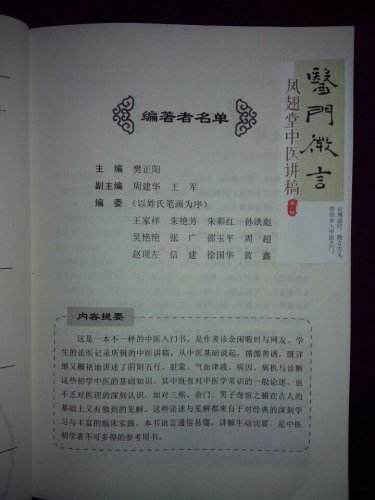 醫門微言
凤翅堂中医讲稿
编著者名单
主　编　樊正阳
副主编　周建华　王　军
编　委（以姓氏笔画为序）
王家祥　朱艳芳　朱彩红　孙洪彪
吴艳艳　张　广　邵玉平　周　超
赵顶左　信　建　徐国华　黄　鑫
内容提要
这是一本不一样的中医入门书，是作者诊余闲暇时与网友、学
生的论医记录所辑的中医讲稿。从中医基础说起，循循善诱，既详
细又概括地讲述了阴阳五行、脏象、气血津液、病因、病机与诊断
这些初学中医的基础知识。其中既有对中医学常识的一般论述，也
不乏对医理的深刻认识，如对三焦、命门、男子奇恒之脏在古人的
基础上又有独到的见解。这些论述与见解都来自于对经典的深刻学
习与丰富的临床实践。本书语言通俗易懂，讲解生动切要，是中医
初学者不可多得的参考用书。